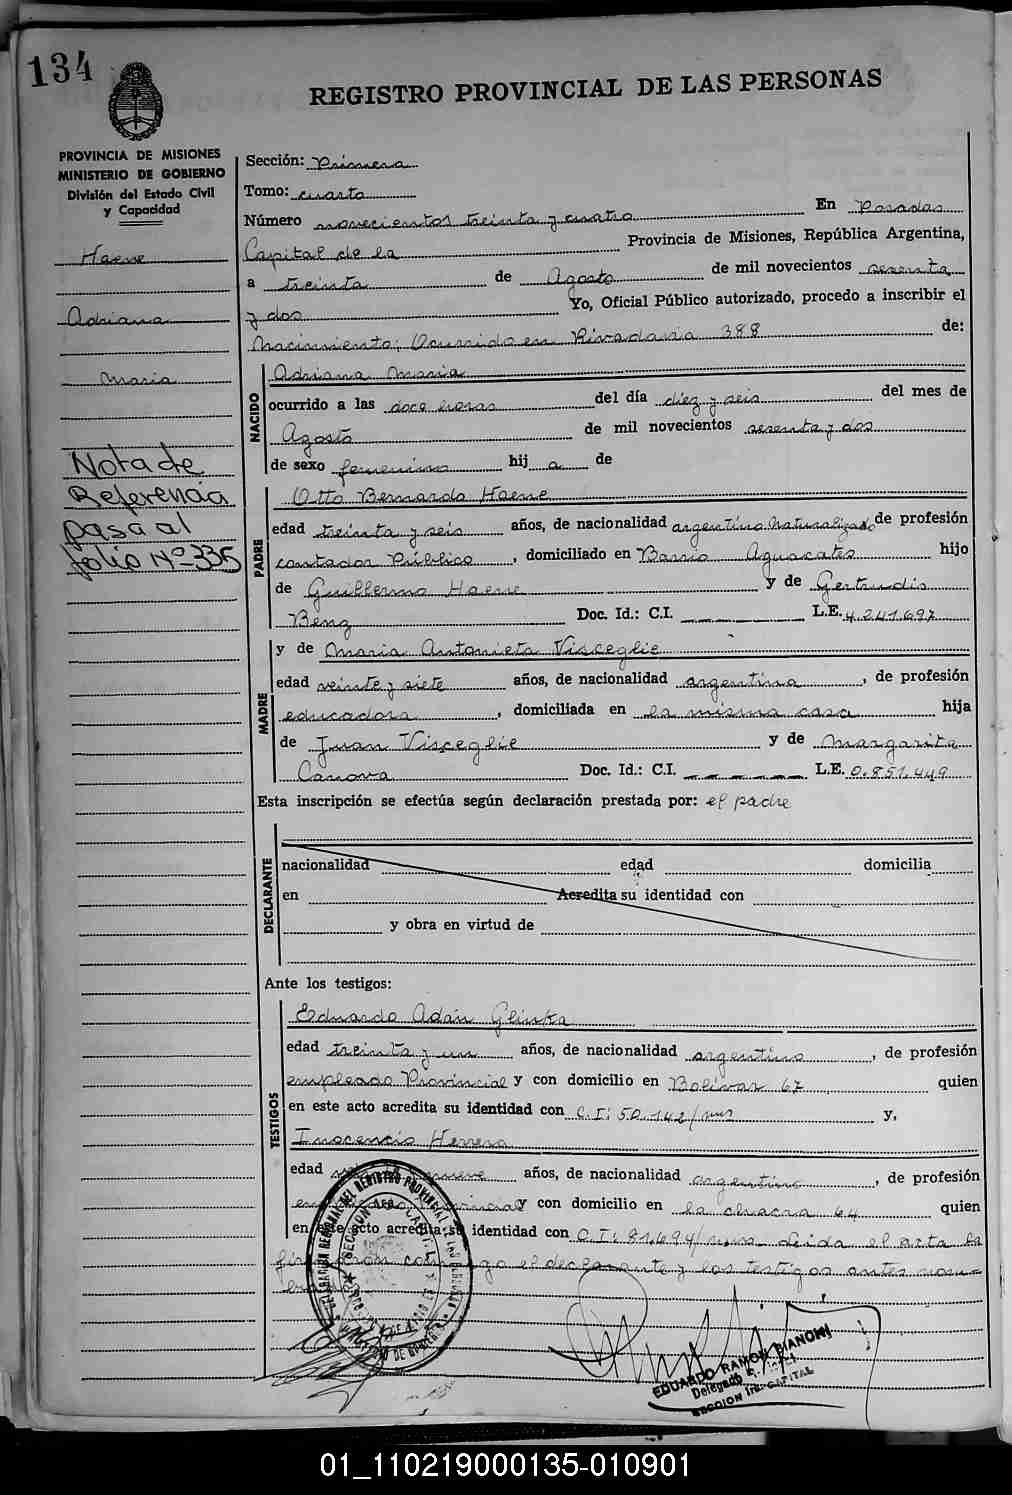 134
REGISTRO PROVINCIAL DE LAS PERSONAS
PROVINCIA DE MISIONES
MINISTERIO DE GOBIERNO
División del Estado Civil
y Capacidad
Haene
Adriana
Maria
Nota de
Referencia
pasa al
folio Nº 335
Sección: Primera
Tomo: cuarto
Número novecientos treinta y cuatro En Posadas
Capital de la Provincia de Misiones, República Argentina,
a treinta de Agosto de mil novecientos sesenta
y dos Yo, Oficial Público autorizado, procedo a inscribir el
Nacimiento; Ocurrido en Rivadavia 388 de:
NACIDO
Adriana Maria
ocurrido a las doce horas del día diez y seis del mes de
Agosto de mil novecientos sesenta y dos
de sexo femenino hij a de
PADRE
Otto Bernardo Haene
edad treinta y seis años, de nacionalidad argentino naturalizado de profesión
contador Público, domiciliado en Barrio Aguacates hijo
de Guillermo Haene y de Gertrudis
Benz Doc. Id.: C.I. L.E. 4.241.697
MADRE
y de Maria Antonieta Visceglie
edad veinte y siete años, de nacionalidad argentina, de profesión
educadora, domiciliada en la misma casa hija
de Juan Visceglie y de Margarita
Canova Doc. Id.: C.I. L.E. 0.851.449
Esta inscripción se efectúa según declaración prestada por: el padre
DECLARANTE
nacionalidad edad domicilia
en Acredita su identidad con
y obra en virtud de
Ante los testigos:
TESTIGOS
Eduardo Adán Glinka
edad treinta y un años, de nacionalidad argentino, de profesión
empleado Provincial y con domicilio en Bolívar 67 quien
en este acto acredita su identidad con C.I: 50.142/mns y,
Inocencio Herrera
edad nueve años, de nacionalidad argentino, de profesión
y con domicilio en la chacra 64 quien
en este acto acredita su identidad con C.I: 81.694/mns. Leida el acta la
el declarante y los testigos antes nom-
EDUARDO RAMON BIANCHI
Delegado
SECCION 1ra. CAPITAL
01_110219000135-010901